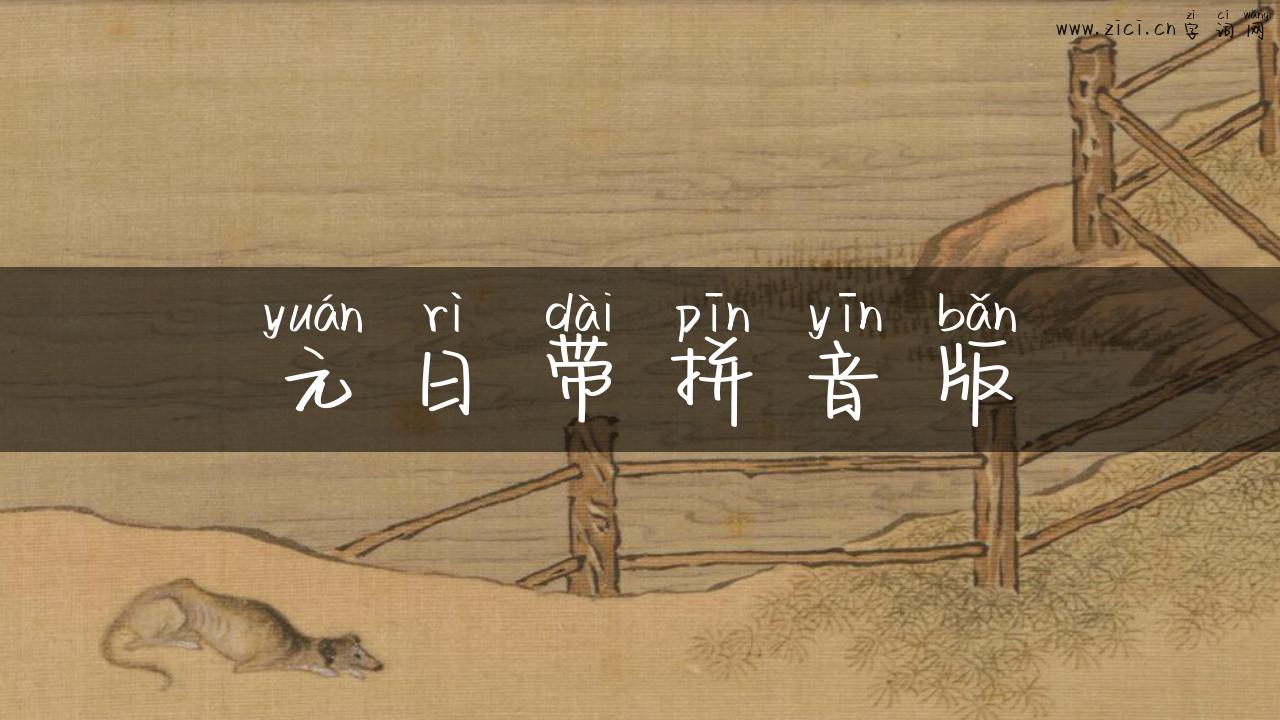 zi ci wang
www.zici.cn 字词网
yuán rì dài pīn yīn bǎn
元日带拼音版